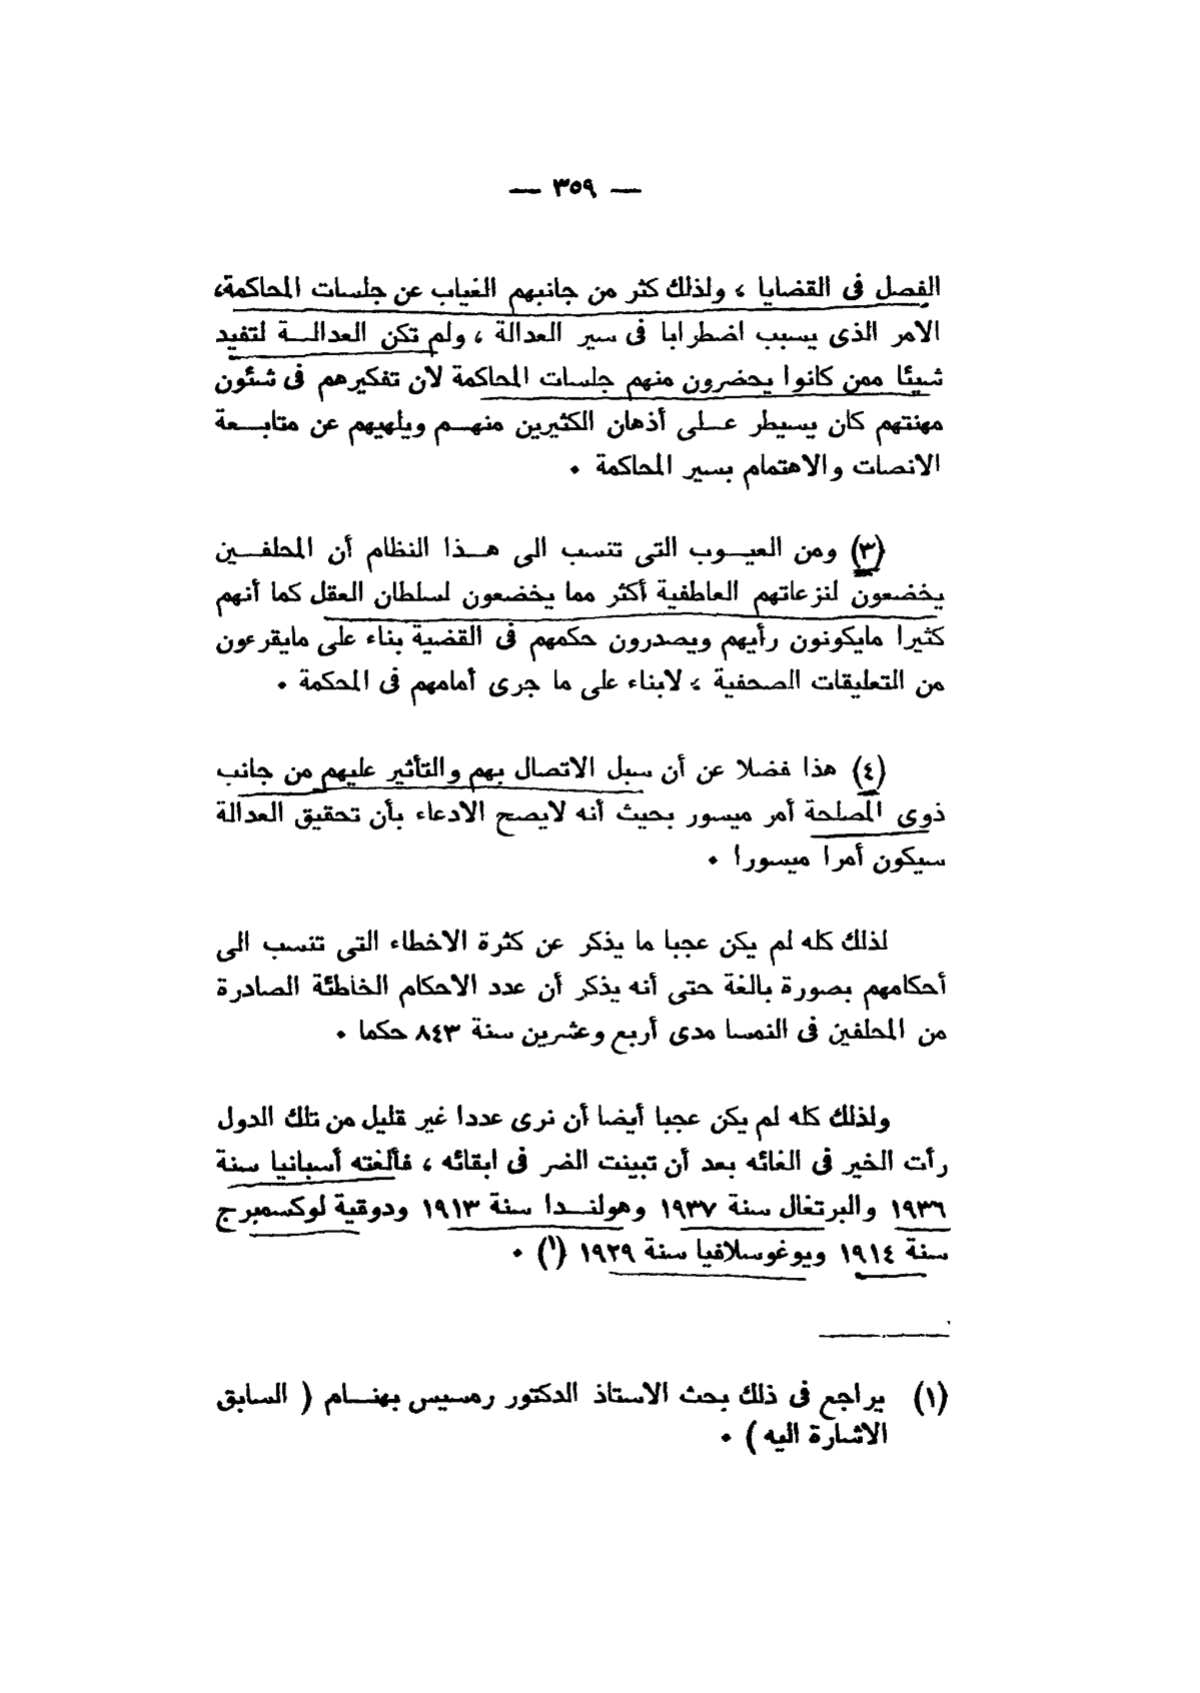 — ٣٥٩ —
الفصل فى القضايا ، ولذلك كثر من جانبهم الغياب عن جلسات المحاكمة،
الامر الذى يسبب اضطرابا فى سير العدالة ، ولم تكن العدالــة لتفيد
شيئا ممن كانوا يحضرون منهم جلسات المحاكمة لان تفكيرهم فى شئون
مهنتهم كان يسيطر عــلى أذهان الكثيرين منهــم ويلهيهم عن متابــعة
الانصات والاهتمام بسير المحاكمة ٠
(٣) ومن العيــوب التى تنسب الى هــذا النظام أن المحلفــين
يخضعون لنزعاتهم العاطفية أكثر مما يخضعون لسلطان العقل كما أنهم
كثيرا مايكونون رأيهم ويصدرون حكمهم فى القضية بناء على مايقرءون
من التعليقات الصحفية ، لابناء على ما جرى أمامهم فى المحكمة ٠
(٤) هذا فضلا عن أن سبل الاتصال بهم والتأثير عليهم من جانب
ذوى المصلحة أمر ميسور بحيث أنه لايصح الادعاء بأن تحقيق العدالة
سيكون أمرا ميسورا ٠
لذلك كله لم يكن عجبا ما يذكر عن كثرة الاخطاء التى تنسب الى
أحكامهم بصورة بالغة حتى أنه يذكر أن عدد الاحكام الخاطئة الصادرة
من المحلفين فى النمسا مدى أربع وعشرين سنة ٨٤٣ حكما ٠
ولذلك كله لم يكن عجبا أيضا أن نرى عددا غير قليل من تلك الدول
رأت الخير فى الغائه بعد أن تبينت الضر فى ابقائه ، فألغته أسبانيا سنة
١٩٣٦ والبرتغال سنة ١٩٣٧ وهولنــدا سنة ١٩١٣ ودوقية لوكسمبرج
سنة ١٩١٤ ويوغوسلافيا سنة ١٩٢٩ (١) ٠
(١) يراجع فى ذلك بحث الاستاذ الدكتور رمسيس بهنــام ( السابق
الاشارة اليه ) ٠